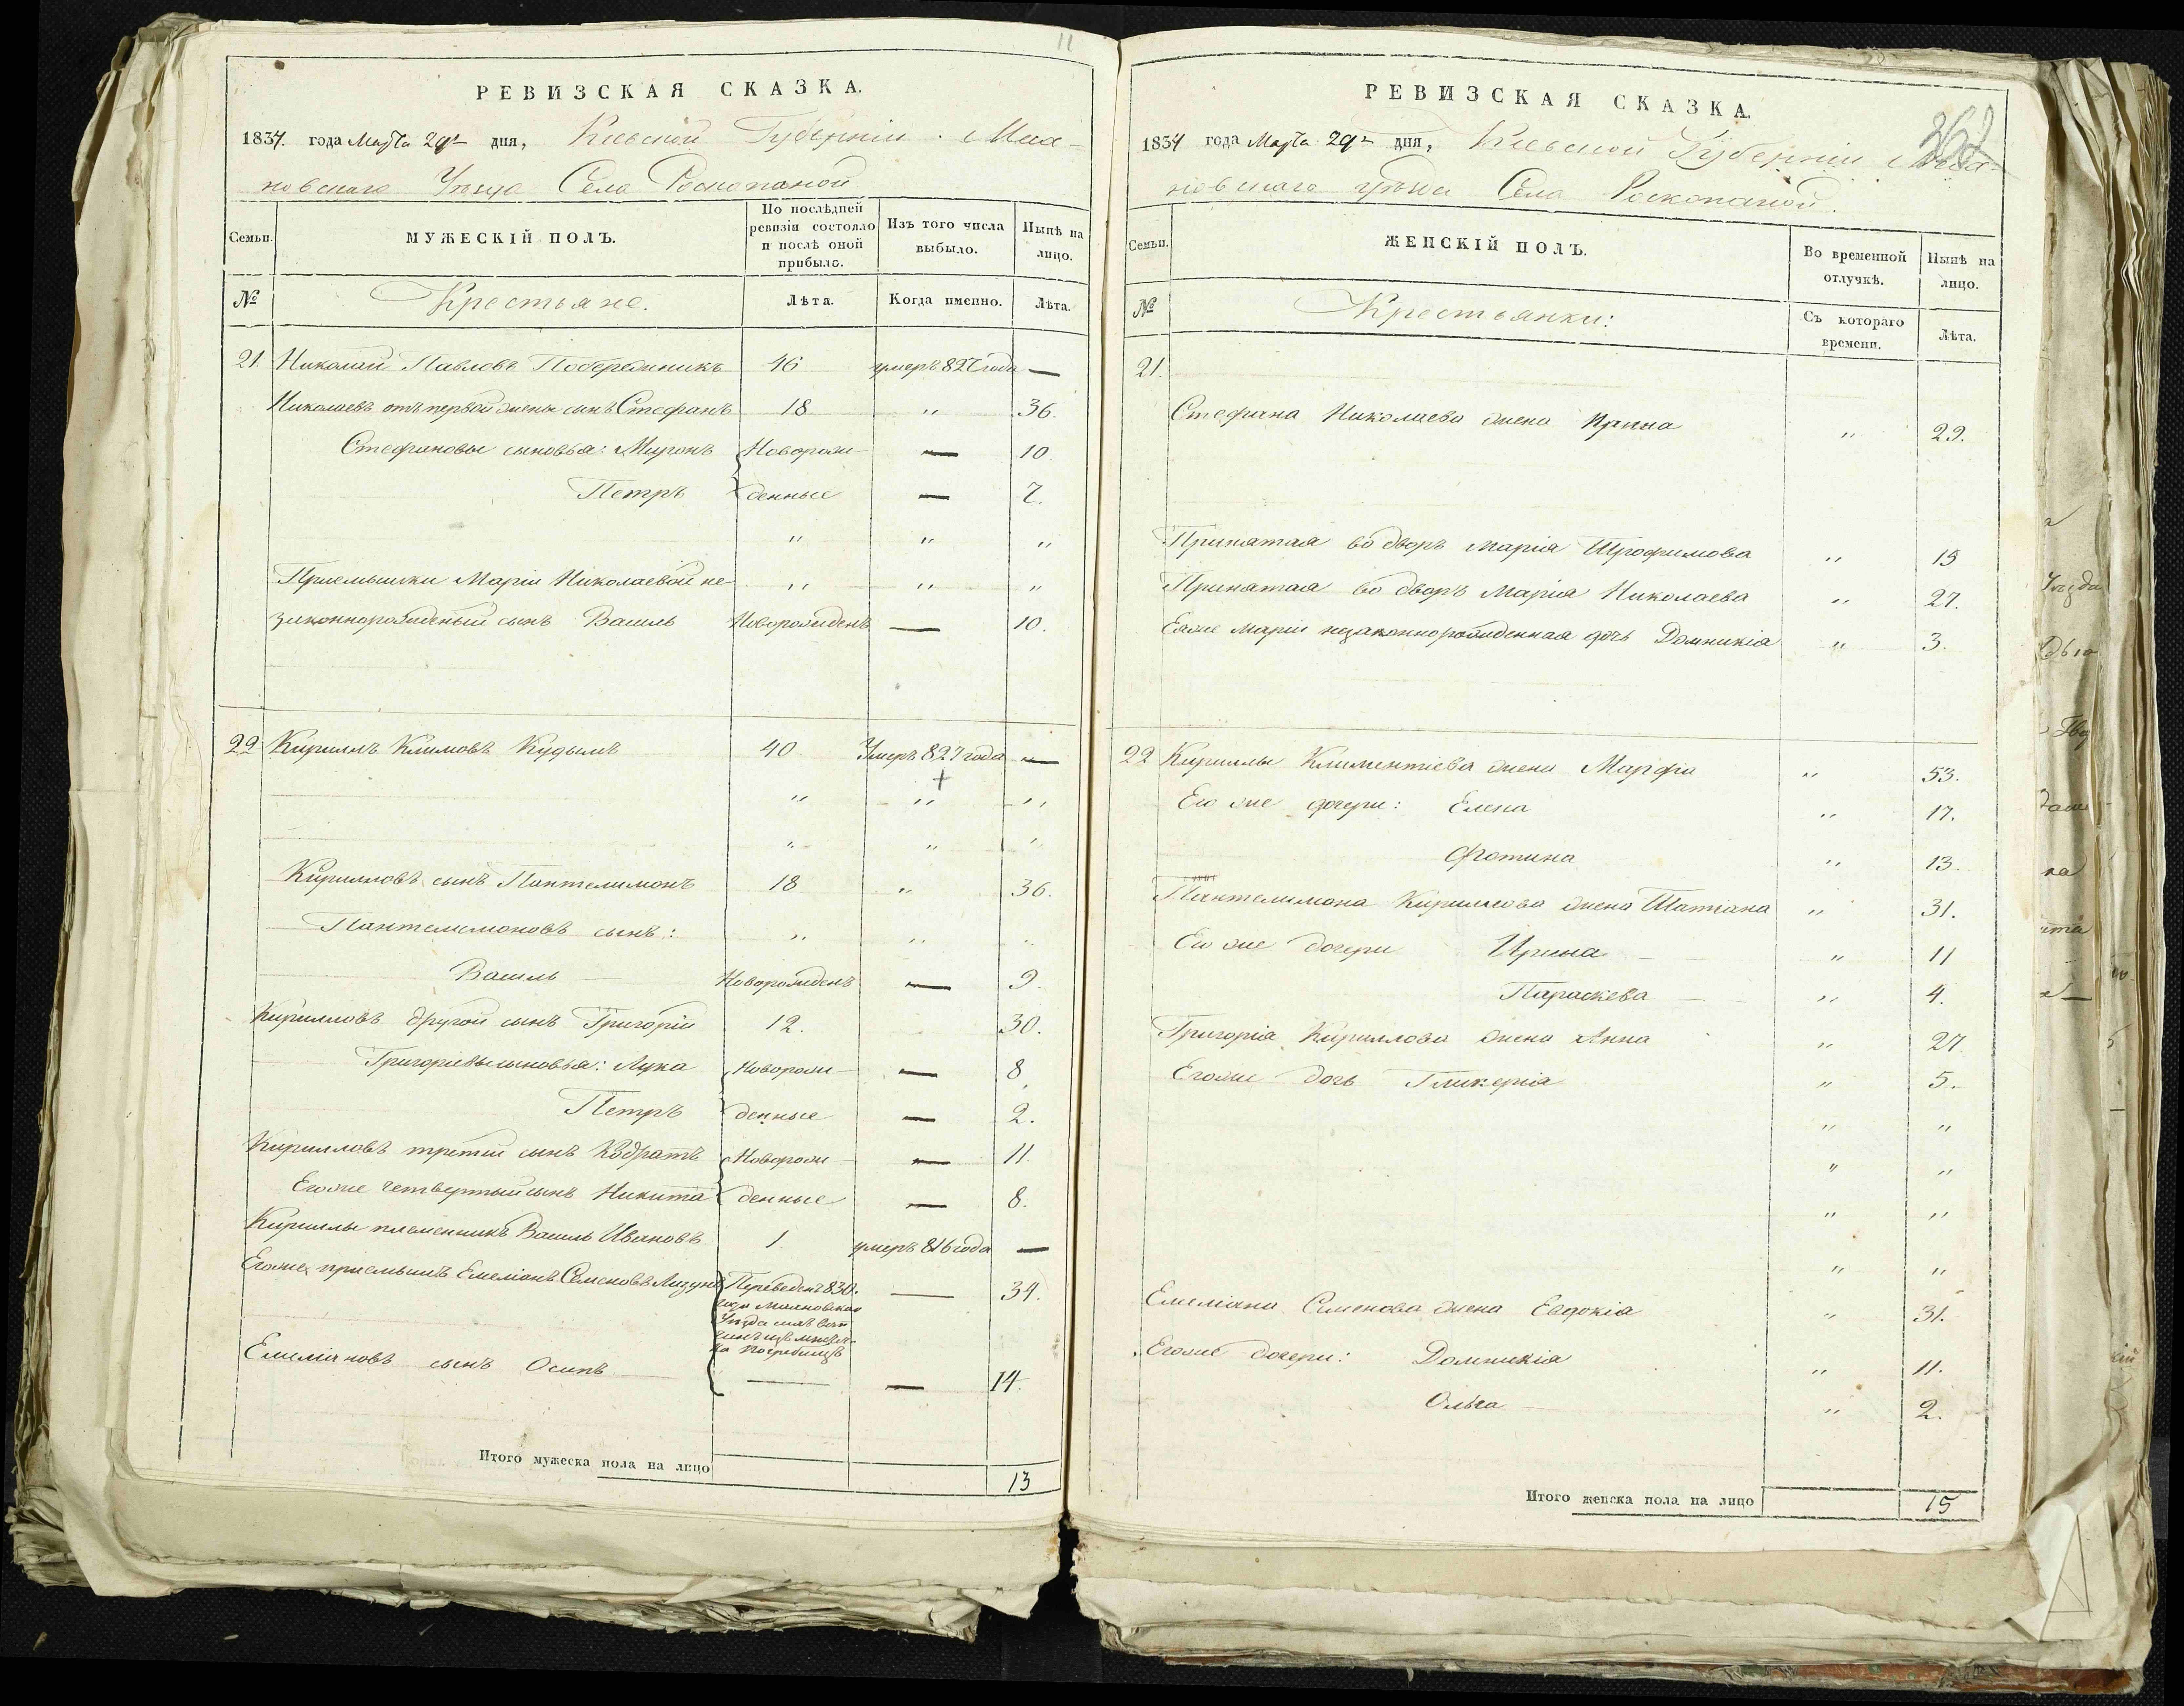 11
РЕВИЗСКАЯ СКАЗКА.
1834. года Марта 29го дня, Кіевской Губерніи
новскаго Уѣзда Села Роскопаной
Семьи.
МУЖЕСКІЙ ПОЛЪ.
По послѣдней ревизіи состояло и послѣ оной прибыло.
Изъ того числа выбыло.
Нынѣ на лицо.
№ Крестьяне. Лѣта. Когда именно. Лѣта.
21. Николай Павловъ Побережникъ 46 умеръ 827 года —
Николаевъ отъ первой жены сынъ Стефанъ 18 " 36.
Стефановы сыновья: Миронъ Новорож- — 10.
Петръ денные — 7.
" " "
Приемышки Маріи Николаевой не- " " "
законнорожденый сынъ Василь Новорожденъ — 10.
22 Кирилъ Климовъ Кудымъ 40 Умеръ 827 года —
" " "
" " "
Кириловъ сынъ Пантелимонъ 18 " 36.
Пантелимоновъ сынъ: " " "
Василь Новорожденъ — 9.
Кириловъ другой сынъ Григорій 12. 30.
Григорьевы сыновья: Лука Новорож- — 8
Петръ денные — 2.
Кириловъ третій сынъ Кодратъ Новорож- — 11.
Егоже четвертый сынъ Никита денные — 8.
Кирилы племенникъ Василь Ивановъ 1 умеръ 816 года —
Егоже приемышъ Емеліанъ Семеновъ Лизунъ Переведенъ 830. — 34.
Емеліановъ сынъ Осипъ — — 14.
Итого мужеска пола на лицо 13
РЕВИЗСКАЯ СКАЗКА.
1834 года Марта 29го дня, Кіевской Губерніи
новскаго уѣзда Села Роскопаной.
Семьи.
ЖЕНСКІЙ ПОЛЪ.
Во временной отлучкѣ.
Нынѣ на лицо.
№ Крестьянки: Съ котораго времени. Лѣта.
21.
Стефана Николаева жена Ирина " 29.
Принятая во дворъ Марія Трофимова " 15
Принятая во дворъ Марія Николаева " 27.
Еяже Маріи незаконнорожденная дочь Домникія " 3.
22 Кирилы Климентіева жена Марфа " 53.
Его же дочери: Елена " 17.
Фотина " 13.
Пантелимона Кирилова жена Татіана " 31.
Его же дочери Ирина " 11
Параскева " 4.
Григорія Кирилова жена Анна " 27
Егоже дочь Гликерія " 5.
" "
" "
" "
" "
Емеліана Семенова жена Евдокія " 31.
Егоже дочери: Домникія " 11.
Ольга " 2.
Итого женска пола на лицо 15